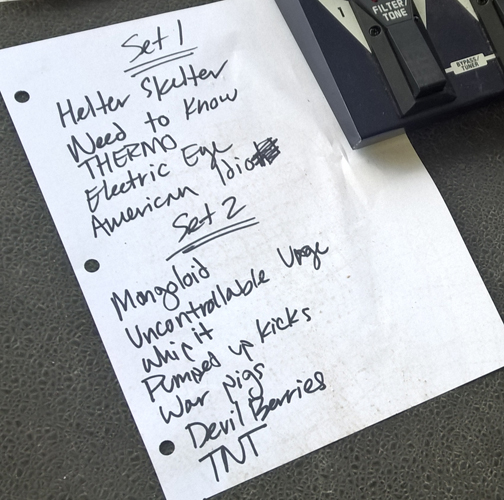 FILTER/
TONE
BYPASS/
TUNER
Set 1
Helter Skelter
Need to Know
THERMO
Electric Eye
American Idiot
Set 2
Mongoloid
Uncontrollable Urge
Whip it
Pumped up Kicks
War pigs
Devil Berries
TNT